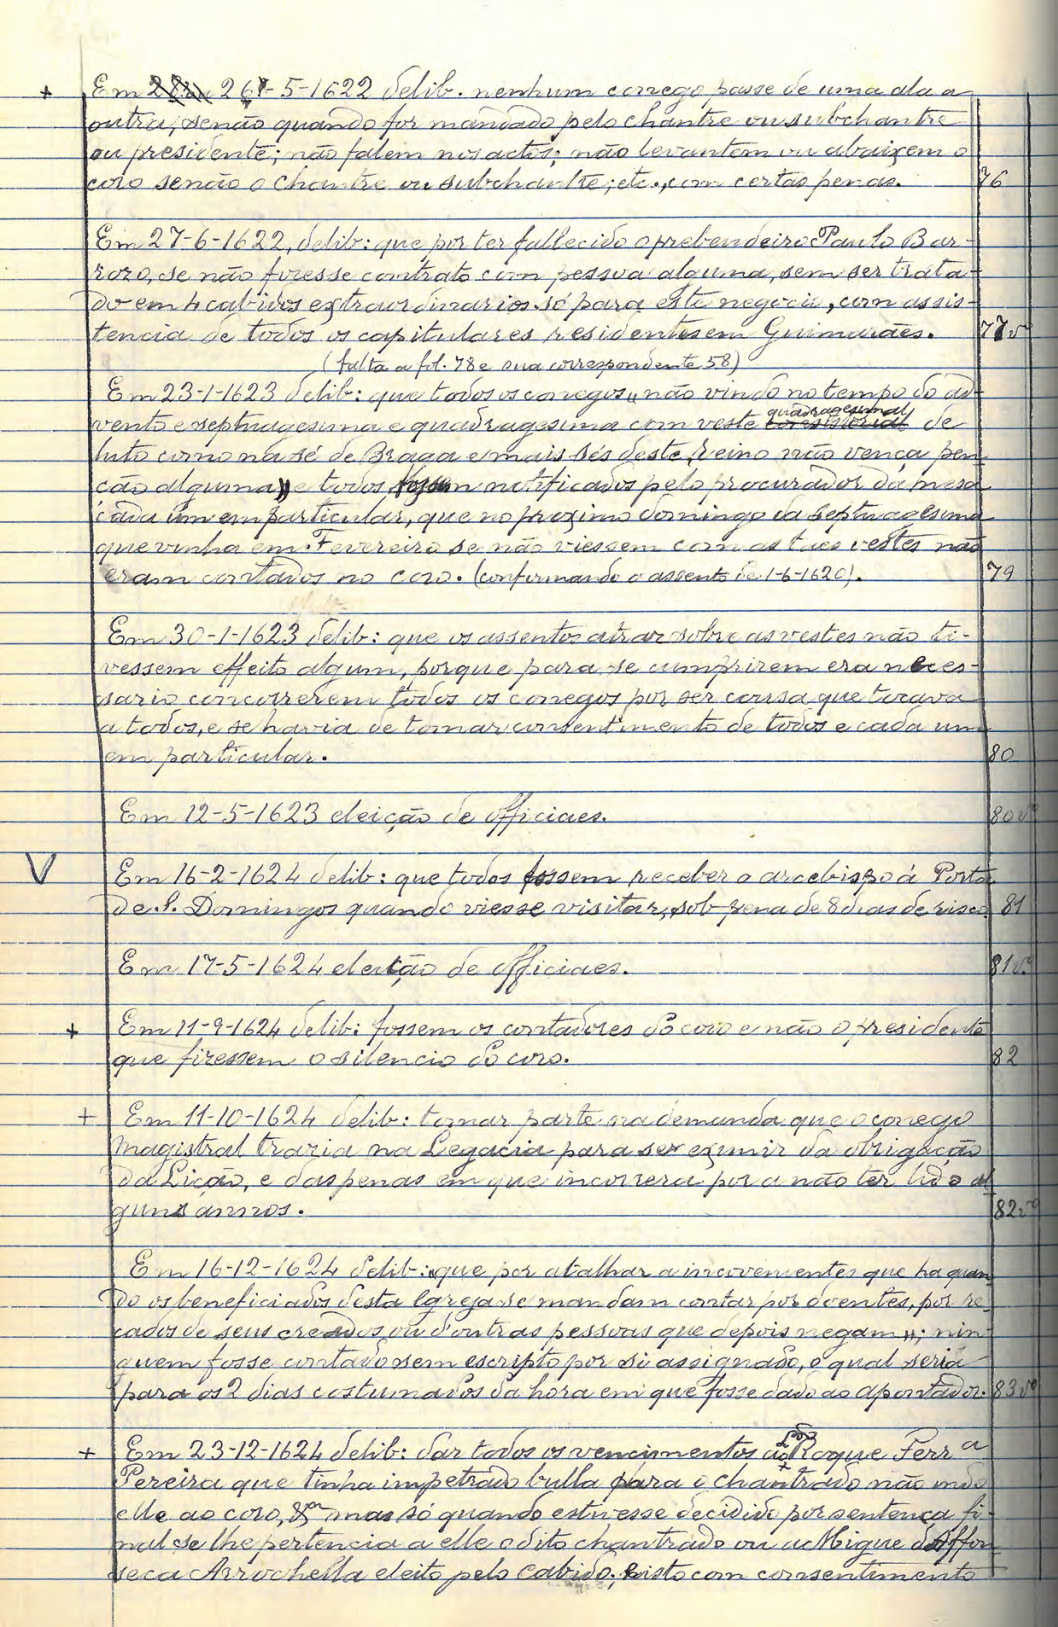 + Em 26-5-1622 delib. nenhum conego passe de uma ala a
outra, senão quando for mandado pelo chantre ou subchantre
ou presidente; não falem nos actos; não levantem ou abaixem o
coro senão o Chantre ou subchantre; etc., com certas penas. 76
Em 27-6-1622, delib: que, por ter fallecido o prebendeiro Paulo Bar-
rozo, se não fizesse contrato com pessoa alguma, sem ser trata-
do em 4 cabidos extraordinarios só para este negocio, com assis-
tencia de todos os capitulares residentes em Guimarães. 77vº
(falta a fol. 78 e sua correspondente 58)
Em 23-1-1623 delib: que todos os conegos „não vindo no tempo do ad-
vento e septuagesima e quadragesima com veste quadragesimal de
luto como na sé de Braga e mais sés deste reino não vença pen-
ção alguma„ e todos fossem notificados pelo procurador da mesa
cada um em particular, que no proximo domingo da septuagesima
que vinha em Fevereiro se não viessem com as taes vestes não
eram contados no coro. (confirmando o assento de 1-6-1620). 79
Em 30-1-1623 delib: que os assentos atraz sobre as vestes não ti-
vessem effeito algum, porque para se cumprirem era neces-
sario concorrerem todos os conegos por ser cousa que tocava
a todos, e se havia de tomar consentimento de todos e cada um
em particular. 80
Em 12-5-1623 eleição de officiaes. 80vº
V Em 16-2-1624 delib: que todos fossem receber o arcebispo á Porta
de S. Domingos quando viesse visitar, sob pena de 8 dias de risco 81
Em 17-5-1624 eleição de officiaes. 81vº
+ Em 11-9-1624 delib: fossem os contadores do coro e não o presidente
que fizessem o silencio do coro. 82
+ Em 11-10-1624 delib: tomar parte na demanda que o conego
Magistral trazia na Legacia para se eximir da obrigação
da Lição, e das penas em que incorrera por a não ter lido al
guns annos. 82vº
Em 16-12-1624 delib: „que por atalhar a inconvenientes que ha quan
do os beneficiados desta Igreja se mandam contar por doentes, por re
cados de seus creados ou d'outras pessoas que depois negam„; nin
guem fosse contado sem escripto por si assignado, o qual seria
para os 2 dias costumados da hora em que fosse dado ao apontador. 83vº
+ Em 23-12-1624 delib: dar todos os vencimentos a Roque Ferr.a
Pereira que tinha impetrado bulla para o chantrado não indo
elle ao coro, mas só quando estivesse decidido por sentença fi
nal se lhe pertencia a elle o dito chantrado ou a Miguel d'Affon
seca Arrochella eleito pelo Cabido; e isto com consentimento